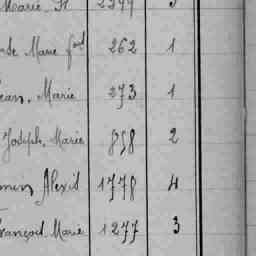 Marie, 2377
Marie 262 1
ean, Marie 273 1
Joseph, Marie 858 2
Alexis 1778 4
rançois Marie 1277 3